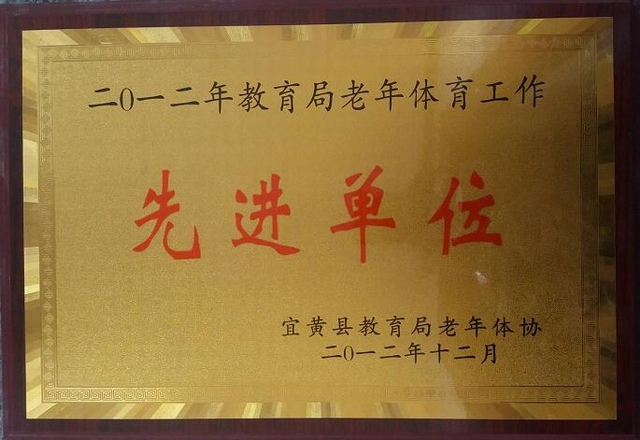 二0一二年教育局老年体育工作
先进单位
宜黄县教育局老年体协
二0一二年十二月